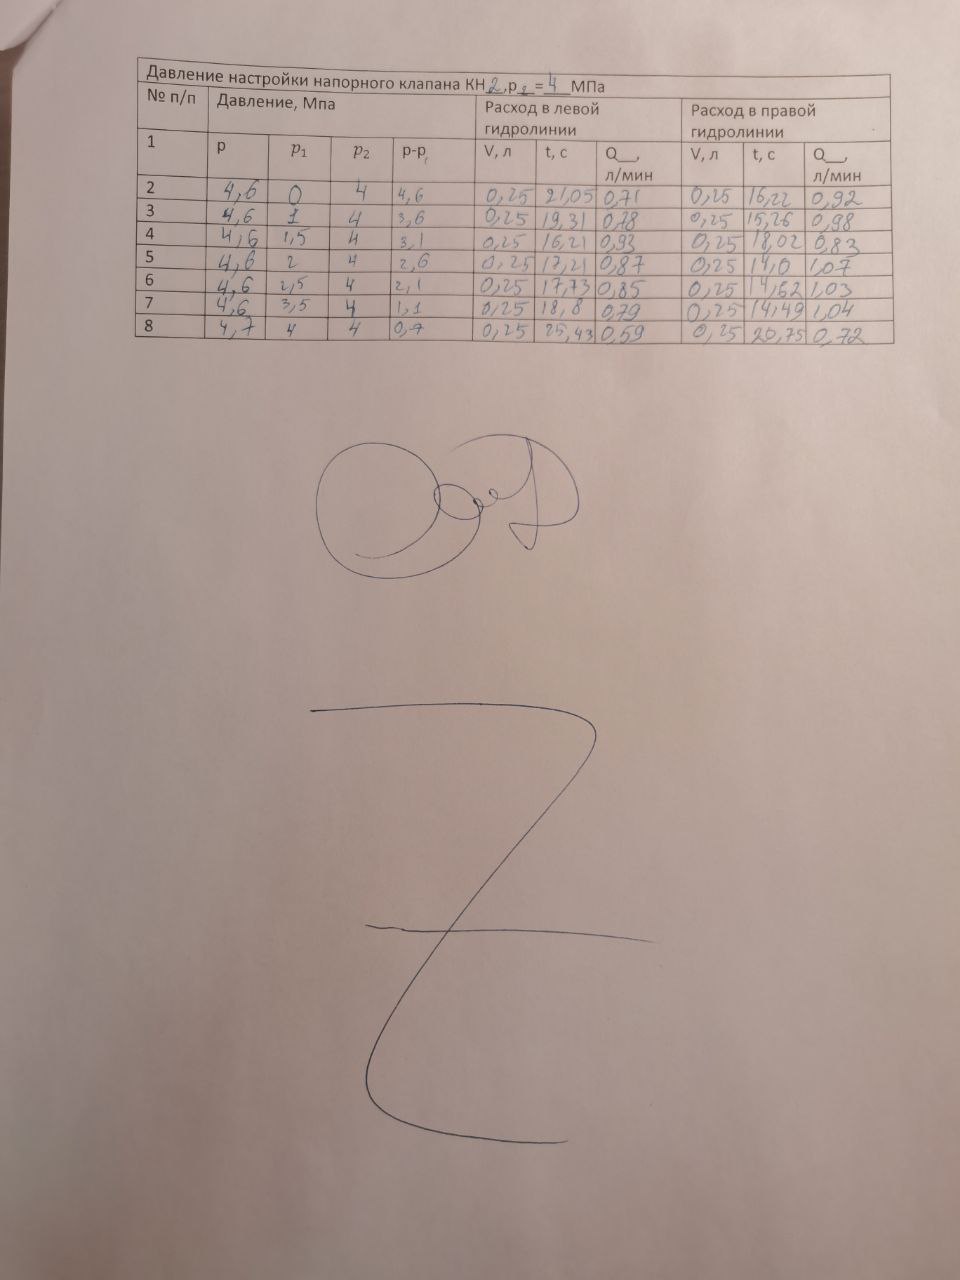 Давление настройки напорного клапана КН 2, р 2 = 4 МПа
№ п/п Давление, Мпа Расход в левой гидролинии Расход в правой гидролинии
1 р p₁ p₂ р-р V, л t, с Q__, л/мин V, л t, с Q__, л/мин
2 4,6 0 4 4,6 0,25 21,05 0,71 0,25 16,22 0,92
3 4,6 1 4 3,6 0,25 19,31 0,78 0,25 15,26 0,98
4 4,6 1,5 4 3,1 0,25 16,21 0,93 0,25 18,02 0,83
5 4,6 2 4 2,6 0,25 17,21 0,87 0,25 14,0 1,07
6 4,6 2,5 4 2,1 0,25 17,73 0,85 0,25 14,62 1,03
7 4,6 3,5 4 1,1 0,25 18,8 0,79 0,25 14,49 1,04
8 4,7 4 4 0,7 0,25 25,43 0,59 0,25 20,75 0,72